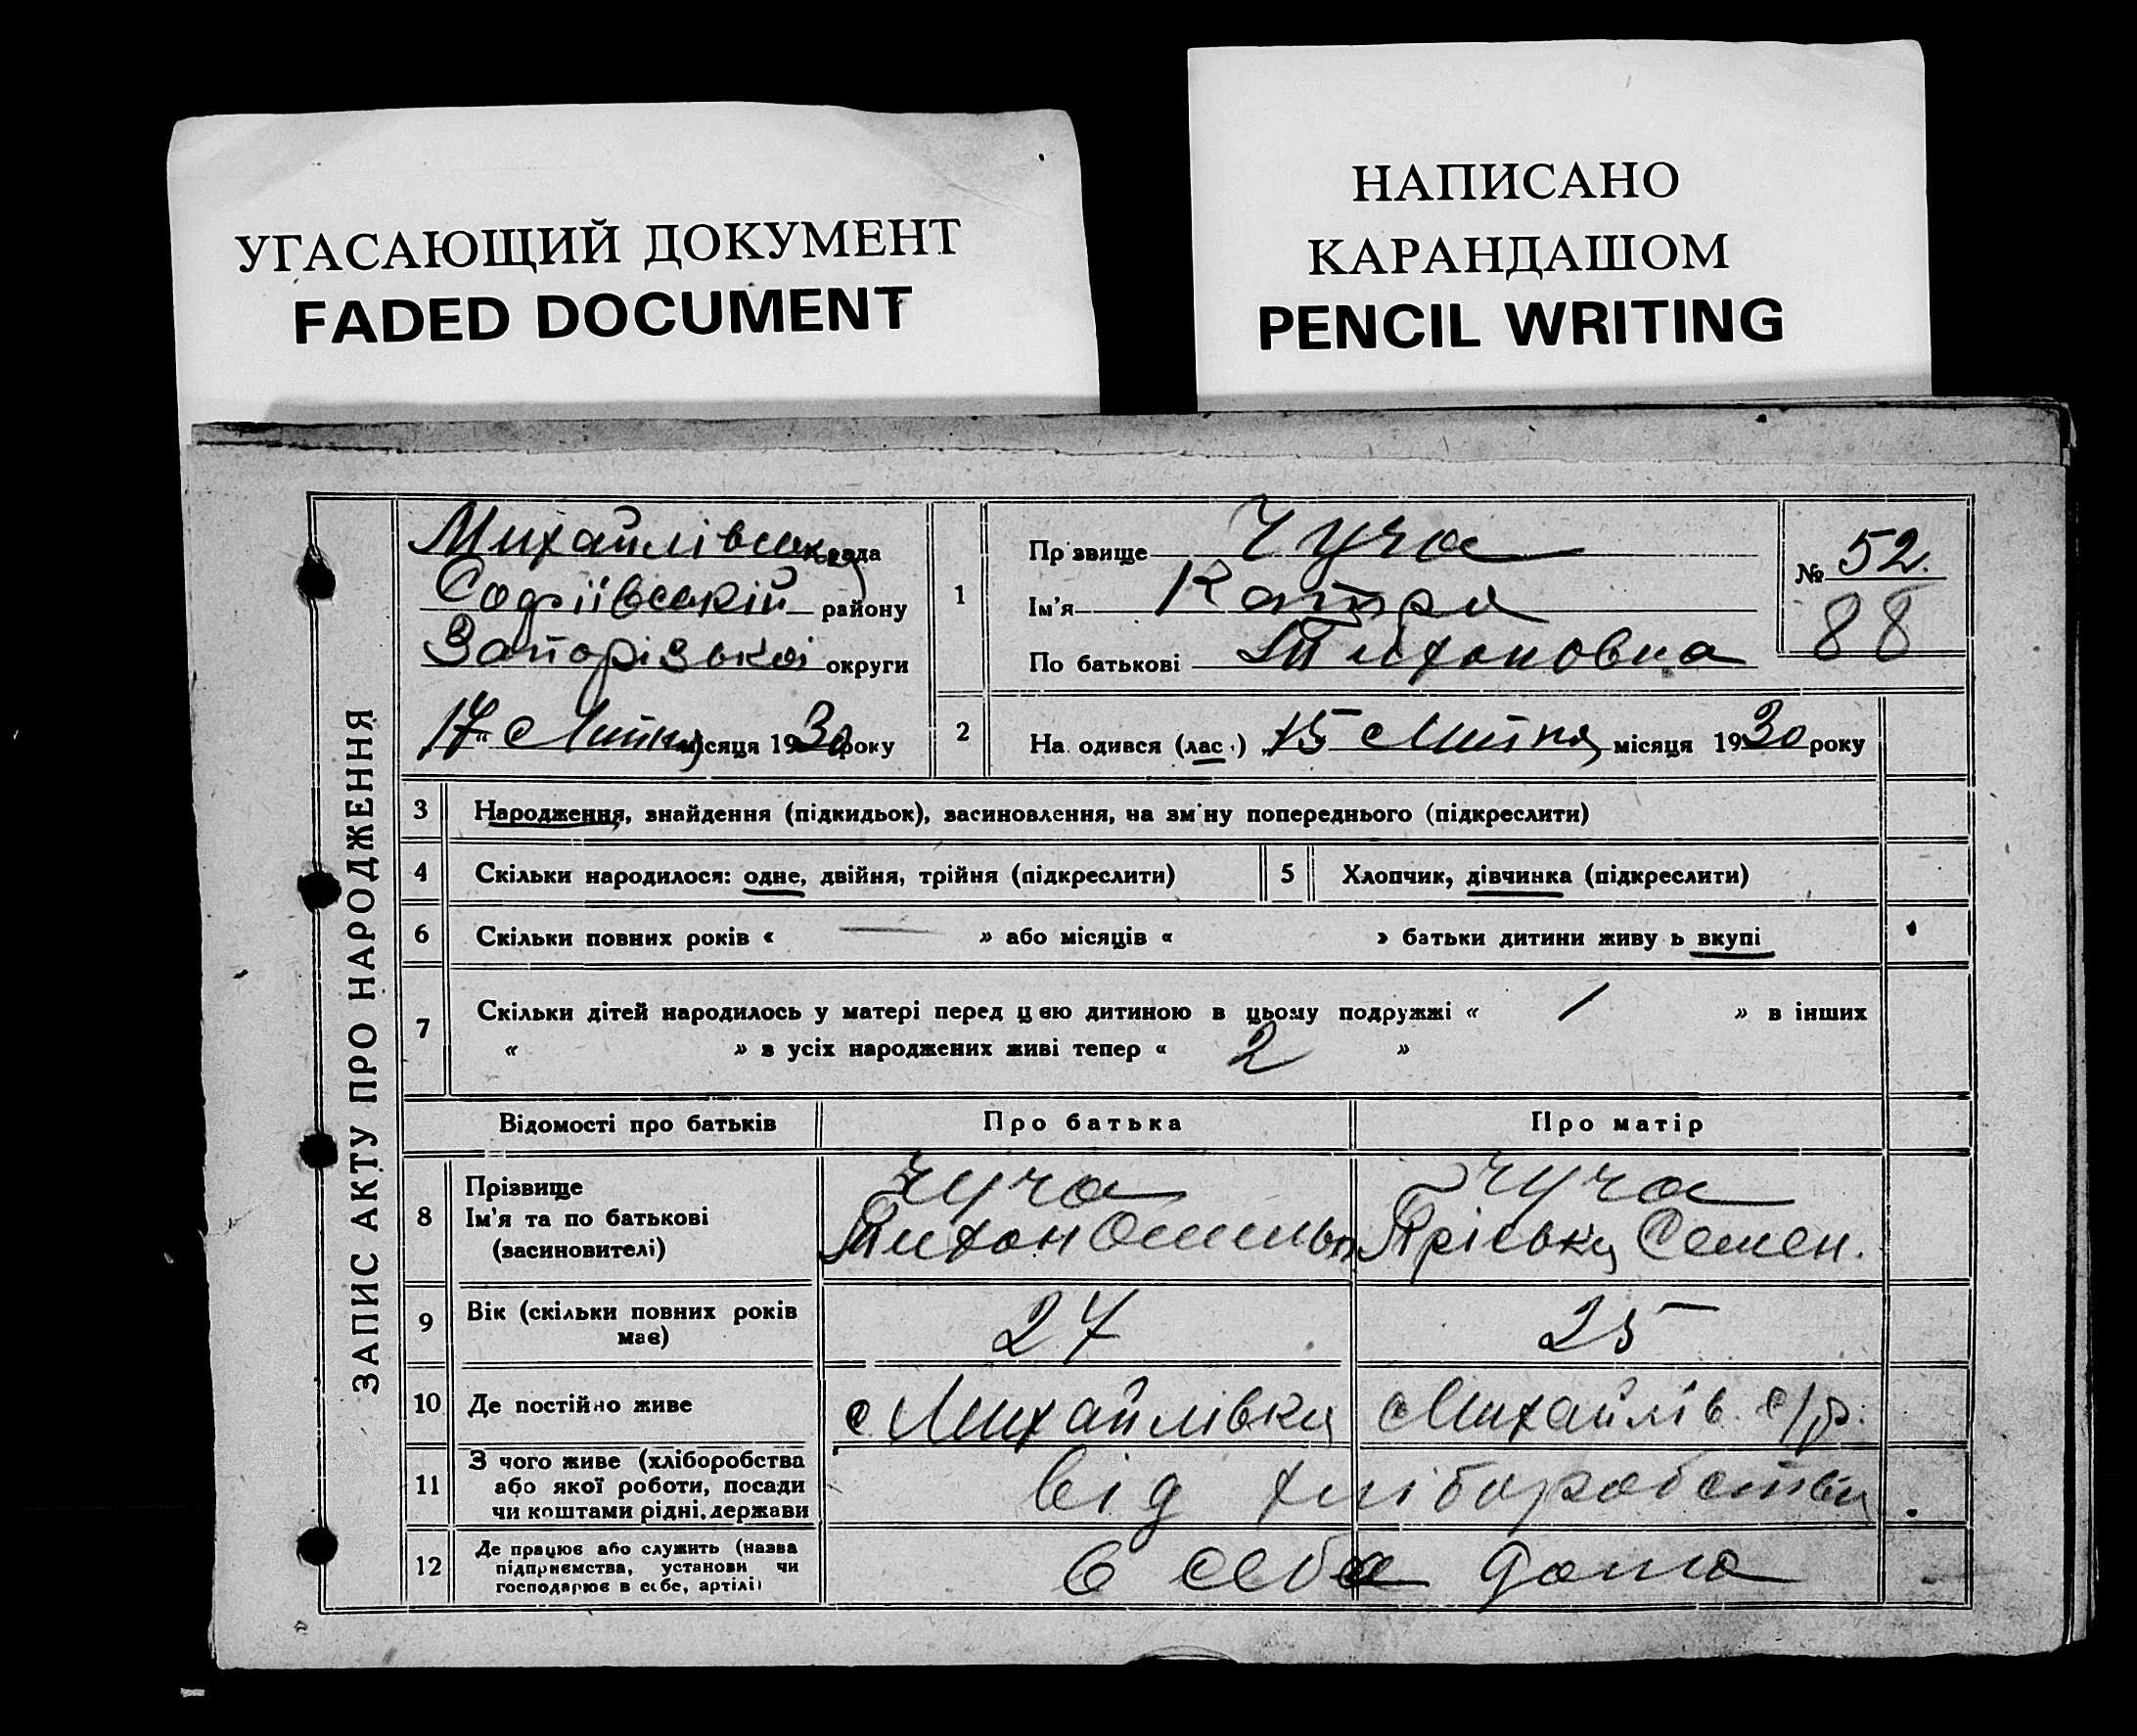 УГАСАЮЩИЙ ДОКУМЕНТ
FADED DOCUMENT
НАПИСАНО
КАРАНДАШОМ
PENCIL WRITING
ЗАПИС АКТУ ПРО НАРОДЖЕННЯ
Михайлівська рада
Софіївський району
Запорізької округи
17 Липня місяця 1930 року
1
Прізвище Чуча
Ім'я Катря
По батькові Тихоновна
№ 52.
88
2 На одився (лас.) 15 Липня місяця 1930 року
3 Народження, знайдення (підкидьок), засиновлення, на зміну попереднього (підкреслити)
4 Скільки народилося: одне, двійня, трійня (підкреслити)
5 Хлопчик, дівчинка (підкреслити)
6 Скільки повних років « — » або місяців « » батьки дитини живу ь вкупі
7 Скільки дітей народилось у матері перед цією дитиною в цьому подружжі « 1 » в інших
« » в усіх народжених живі тепер « 2 »
Відомості про батьків Про батька Про матір
8 Прізвище Чуча Чуча
Ім'я та по батькові Тихон Семен.
(засиновителі)
9 Вік (скільки повних років 27 25
має)
10 Де постійно живе с Михайлівка Михайлів. с/р.
11 З чого живе (хліборобства від хліборобства
або якої роботи, посади
чи коштами рідні, держави
12 Де працює або служить (назва в себе дома
підприємства, установи чи
господарює в себе, артілі)